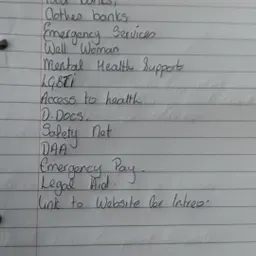 Food banks,
Clothes banks
Emergency Services
Well Woman
Mental Health Supports
LGBTi
Access to health
D. Docs.
Safety Net
DAA
Emergency Pay.
Legal Aid
Link to Website for